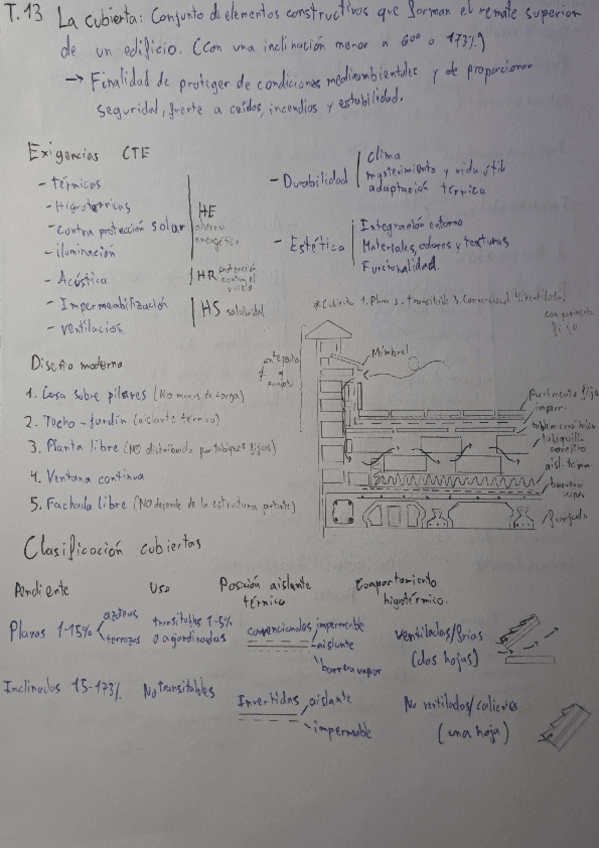 T.13 La cubierta: Conjunto de elementos constructivos que forman el remate superior
de un edificio. (con una inclinación menor a 60º o 173%)
→ Finalidad de proteger de condiciones medioambientales y de proporcionar
seguridad, frente a caídas, incendios y estabilidad.
Exigencias CTE
- térmicas
- Higrotérmicas
- contra protección solar
- iluminación
HE ahorro energético
- Acústica
HR protección contra el ruido
- Impermeabilización
- ventilación
HS salubridad
- Durabilidad
clima
mantenimiento y vida útil
adaptación térmica
- Estética
Integración entorno
Materiales, colores y texturas
Funcionalidad.
* Cubierta 1. Plana 2. Transitable 3. Convencional 4. Ventilada,
con pavimento
fijo
Diseño moderno
1. Casa sobre pilares (No muros de carga)
2. Techo-jardín (aislante térmico)
3. Planta libre (NO distribuida por tabiques fijos)
4. Ventana continua
5. Fachada libre (NO depende de la estructura portante)
antepecho
y
Mimbral
Pavimento fijo
imper.
tablero cerámico
tabiquill.
aisl. term.
barrera
vapor
forjado
Clasificación cubiertas
Pendiente
Uso
Posición aislante
térmico
Comportamiento
higrotérmico.
Planas 1-15%
azoteas
terrazas
transitables 1-5%
o ajardinadas
convencionales
impermeable
aislante
barrera vapor
ventiladas/frías
(dos hojas)
Inclinadas 15-173%
No transitables
Invertidas
aislante
impermeable
No ventiladas/calientes
(una hoja)